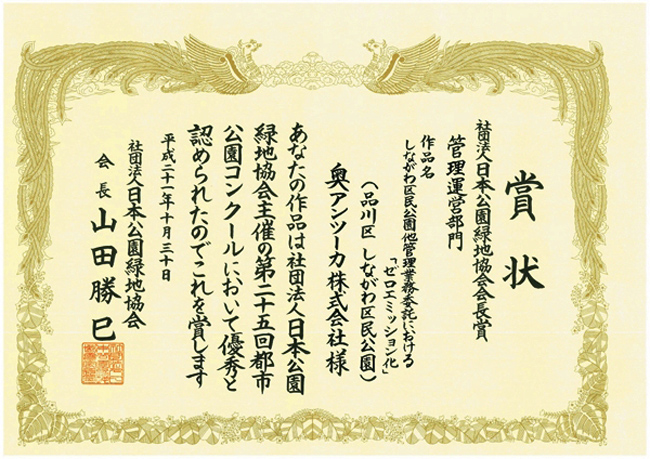 賞状
社団法人日本公園緑地協会会長賞
管理運営部門
作品名
しながわ区民公園他管理業務委託における
「ゼロエミッション化」
（品川区 しながわ区民公園）
奥アンツーカ株式会社様
あなたの作品は社団法人日本公園
緑地協会主催の第二十五回都市
公園コンクールにおいて優秀と
認められたのでこれを賞します
平成二十一年十月三十日
社団法人日本公園緑地協会
会長 山田勝巳